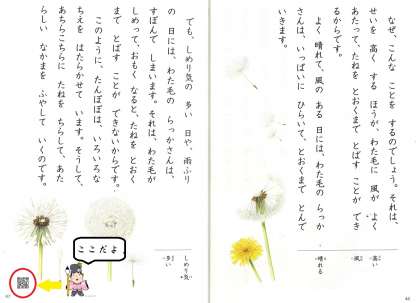 なぜ、こんな ことを するのでしょう。それは、
せいを 高く する ほうが、わた毛に 風が よく
あたって、たねを とおくまで とばす ことが でき
るからです。
よく 晴れて、風の ある 日には、わた毛の らっか
さんは、いっぱいに ひらいて、とおくまで とんで
いきます。
高い
風
晴れる
でも、しめり気の 多い 日や、雨ふり
の 日には、わた毛の らっかさんは、
すぼんで しまいます。それは、わた毛が
しめって、おもく なると、たねを とおく
まで とばす ことが できないからです。
このように、たんぽぽは、いろいろな
ちえを はたらかせて います。そうして、
あちらこちらに たねを ちらして、あた
らしい なかまを ふやして いくのです。
しめり気
多い
ここだよ